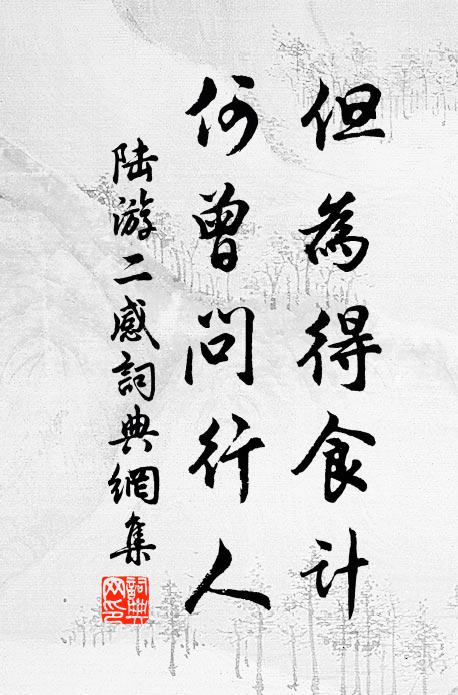 但為得食计
何曾问行人
陆游二感詞典網集
詞典